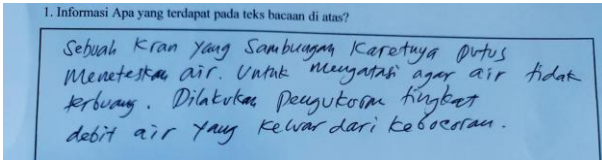 1. Informasi Apa yang terdapat pada teks bacaan di atas?
Sebuah Kran yang Sambungan Karetnya putus
meneteskan air. Untuk mengatasi agar air tidak
terbuang. Dilakukan pengukuran tingkat
debit air yang keluar dari kebocoran.